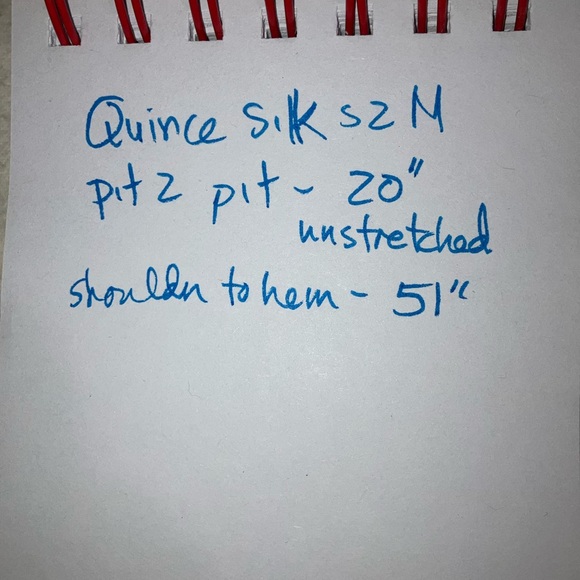 Quince Silk sz M
pit 2 pit - 20"
unstretched
shouldr to hem - 51"